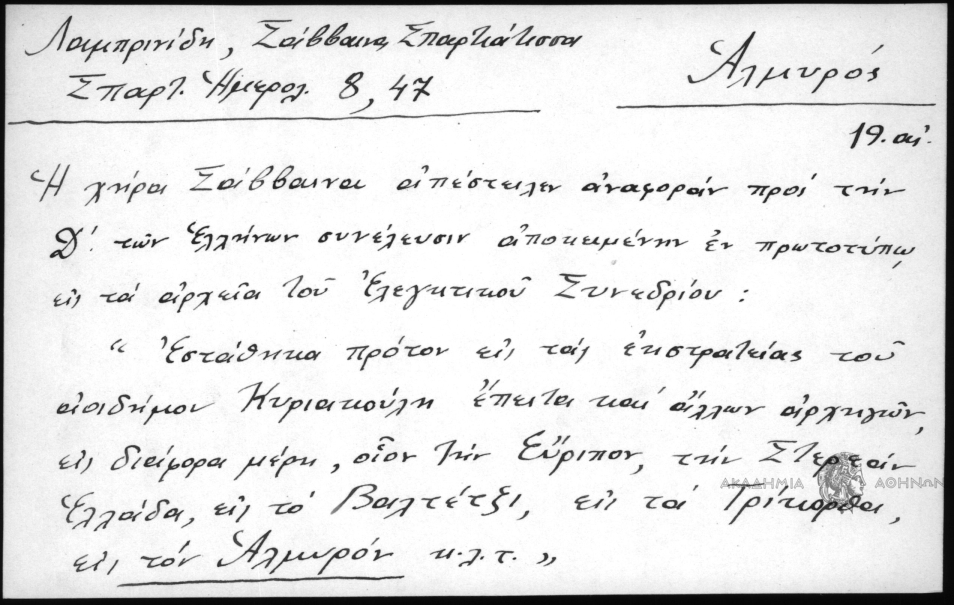 Λαμπρινίδη, Σάββαινα Σπαρτιάτισσα
Σπαρτ. Ἡμερολ. 8, 47
Ἁλμυρός
19. αἰ.
Ἡ χήρα Σάββαινα ἀπέστειλεν ἀναφοράν πρός τήν
Δ΄. τῶν Ἑλλήνων συνέλευσιν ἀποκειμένην ἐν πρωτοτύπῳ
εἰς τά ἀρχεῖα τοῦ Ἐλεγκτικοῦ Συνεδρίου :
“ Ἐστάθηκα πρότον εἰς τάς ἐκστρατείας τοῦ
ἀοιδήμου Κυριακούλη ἔπειτα καί ἄλλων ἀρχηγῶν,
εἰς διάφορα μέρη, οἷον τήν Εὔριπον, τήν Στερεάν
Ἑλλάδα, εἰς τό Βαλτέτζι, εἰς τά Τρίκορθα,
εἰς τόν Ἁλμυρόν κ.λ.τ. „
ΑΚΑΔΗΜΙΑ ΑΘΗΝΩΝ